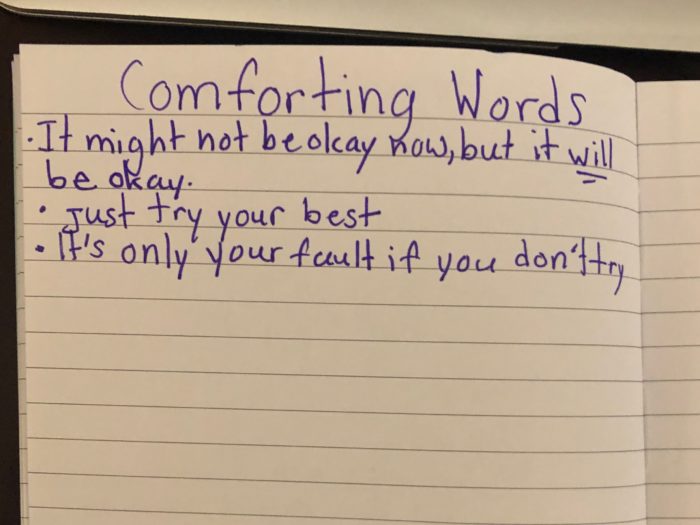 Comforting Words
· It might not be okay now, but it will
be okay.
· Just try your best
· It's only your fault if you don't try